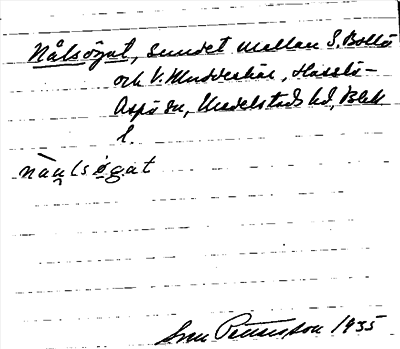 Nålsögat, sundet mellan S. Bollö
och V. Muddeskär, Hasslö-
Aspö sn, Medelstads hd, Blek
l.
nàu̯lsøgat
Sven Pettersson 1935